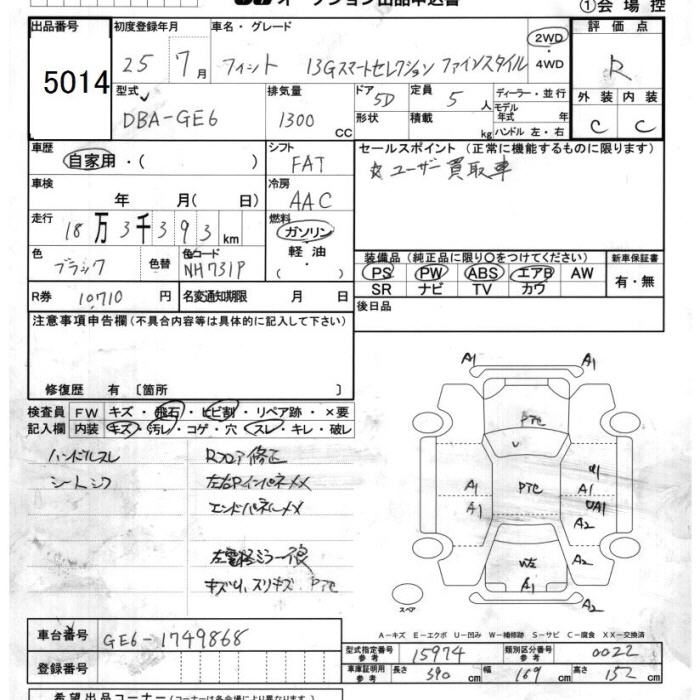 オークション出品申込書 ①会場控
出品番号 初度登録年月 車名・グレード 評価点
5014 25 7月 フィット 13Gスマートセレクション ファインスタイル 2WD ・ 4WD R
型式 排気量 ドア 5D 定員 5 人 ディーラー・並行 外装 内装
DBA-GE6 1300 CC 形状 積載 kg モデル年式 年 ハンドル 左・右 C C
車歴 シフト セールスポイント (正常に機能するものに限ります)
自家用・( ) FAT ☆ユーザー買取車
車検 年 月( 日) 冷房 AAC
走行 18万3千393km 燃料 ガソリン 軽油 ・( )
装備品 (純正品に限り〇をつけてください) 新車保証書
色 ブラック 色替 色コード NH731P PS PW ABS エアB AW 有・無
SR ナビ TV カワ
R券 10710 円 名変通知期限 月 日 後日品
注意事項申告欄 (不具合内容等は具体的に記入して下さい)
修復歴 有 〔箇所 〕
検査員 FW キズ・飛石・ヒビ割・リペア跡・×要
記入欄 内装 キズ・汚レ・コゲ・穴・スレ・キレ・破レ
ハンドルスレ Rフロア修正
シートシワ 左右Rインパネメメ
エンドパネルメメ
キズU、スリキズ、Pアセ
A1 A1
Pアセ
A1 Pアセ A1
A1 UA1
A2
A2
A1
A2
スペア
A-キズ E-エクボ U-凹み W-補修跡 S-サビ C-腐食 XX-交換済
車台番号 GE6-1749868 型式指定番号 参考 15974 類別区分番号 参考 0022
登録番号 車庫証明用 参考 長さ 390 cm 幅 169 cm 高さ 152 cm
希望出品コーナー (コーナーは各会場により異なります)